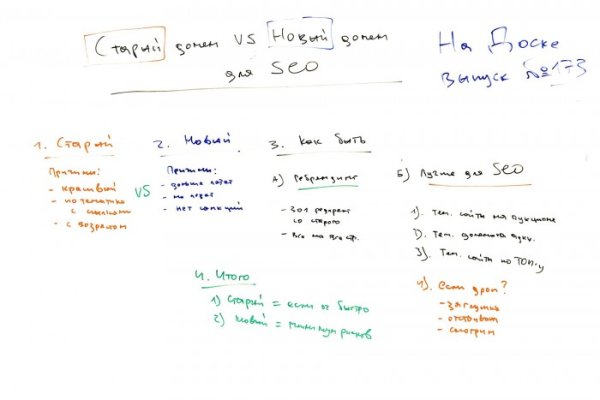 Старый домен VS Новый домен
для SEO
На Доске
выпуск №173
1. Старый
Причины:
- красивый
- по тематике
с ссылками
- с возрастом
VS
2. Новый
Причины:
- дольше
- не
- нет санкций
3. Как быть
А) Ребрендинг
- 301 редирект
со старого
- Все на все стр.
Б) Лучше для SEO
1). Тем. сайты на аукционе
2). Тем. домены аукц.
3). Тем. сайты по ТОП-у
4). если дроп?
- загнулся
- отстаивам
- смотрим
4. Итого
1) Старый = если оч быстро
2) Новый = минимум рисков